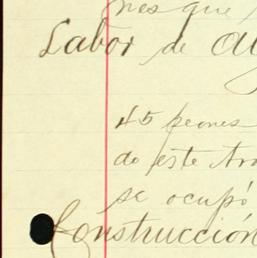 nes que
Labor de
45 peones
do este tra
se ocupó
Construcción